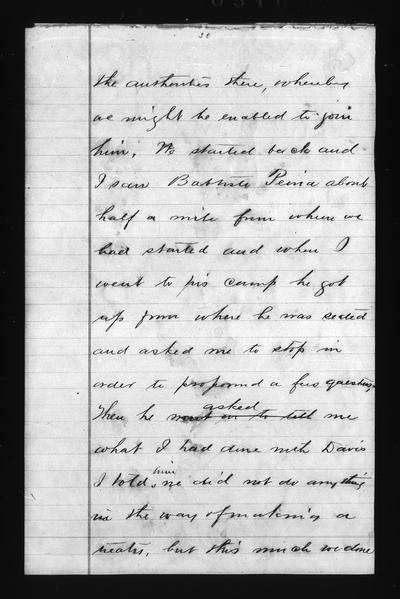 38
the authorities there, whereby
we might be enabled to join
him. We started back and
I saw Babtiste Peina about
half a mile from where we
had started and when I
went to his camp he got
up from where he was seated
and asked me to stop in
order to propound a few questions.
Then he went on to tell asked me
what I had done with Davis
I told him we did not do anything
in the way of making a
treaty, but this much we done